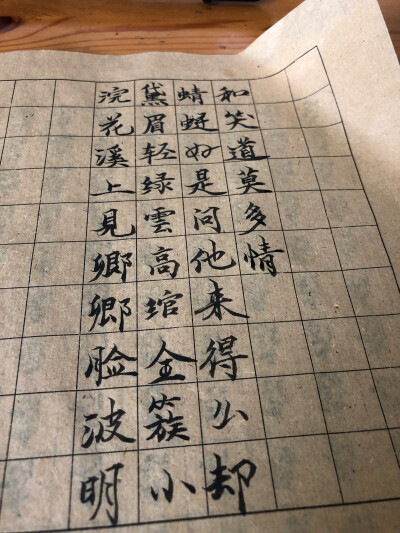 浣花溪上見卿卿脸波明
黛眉轻绿雲高绾金簇小
蜻蜓好是问他来得么却
和笑道莫多情